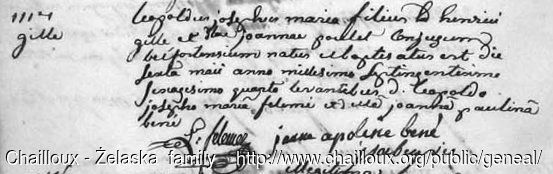 1114
gille
leopoldus josephus maria filius D henrici
gille et Dae joannae poulet Conjugum
belfortensium natus et baptisatus est die
sexta maii anno millesimo septingentesimo
sexagesimo quarto levantibus d. leopoldo
josepho mariâ felemé et dlla joannâ paulinâ
bené
felemez
jeanne apoline bené
Chailloux - Żelaska family - http://www.chailloux.org/public/geneal/